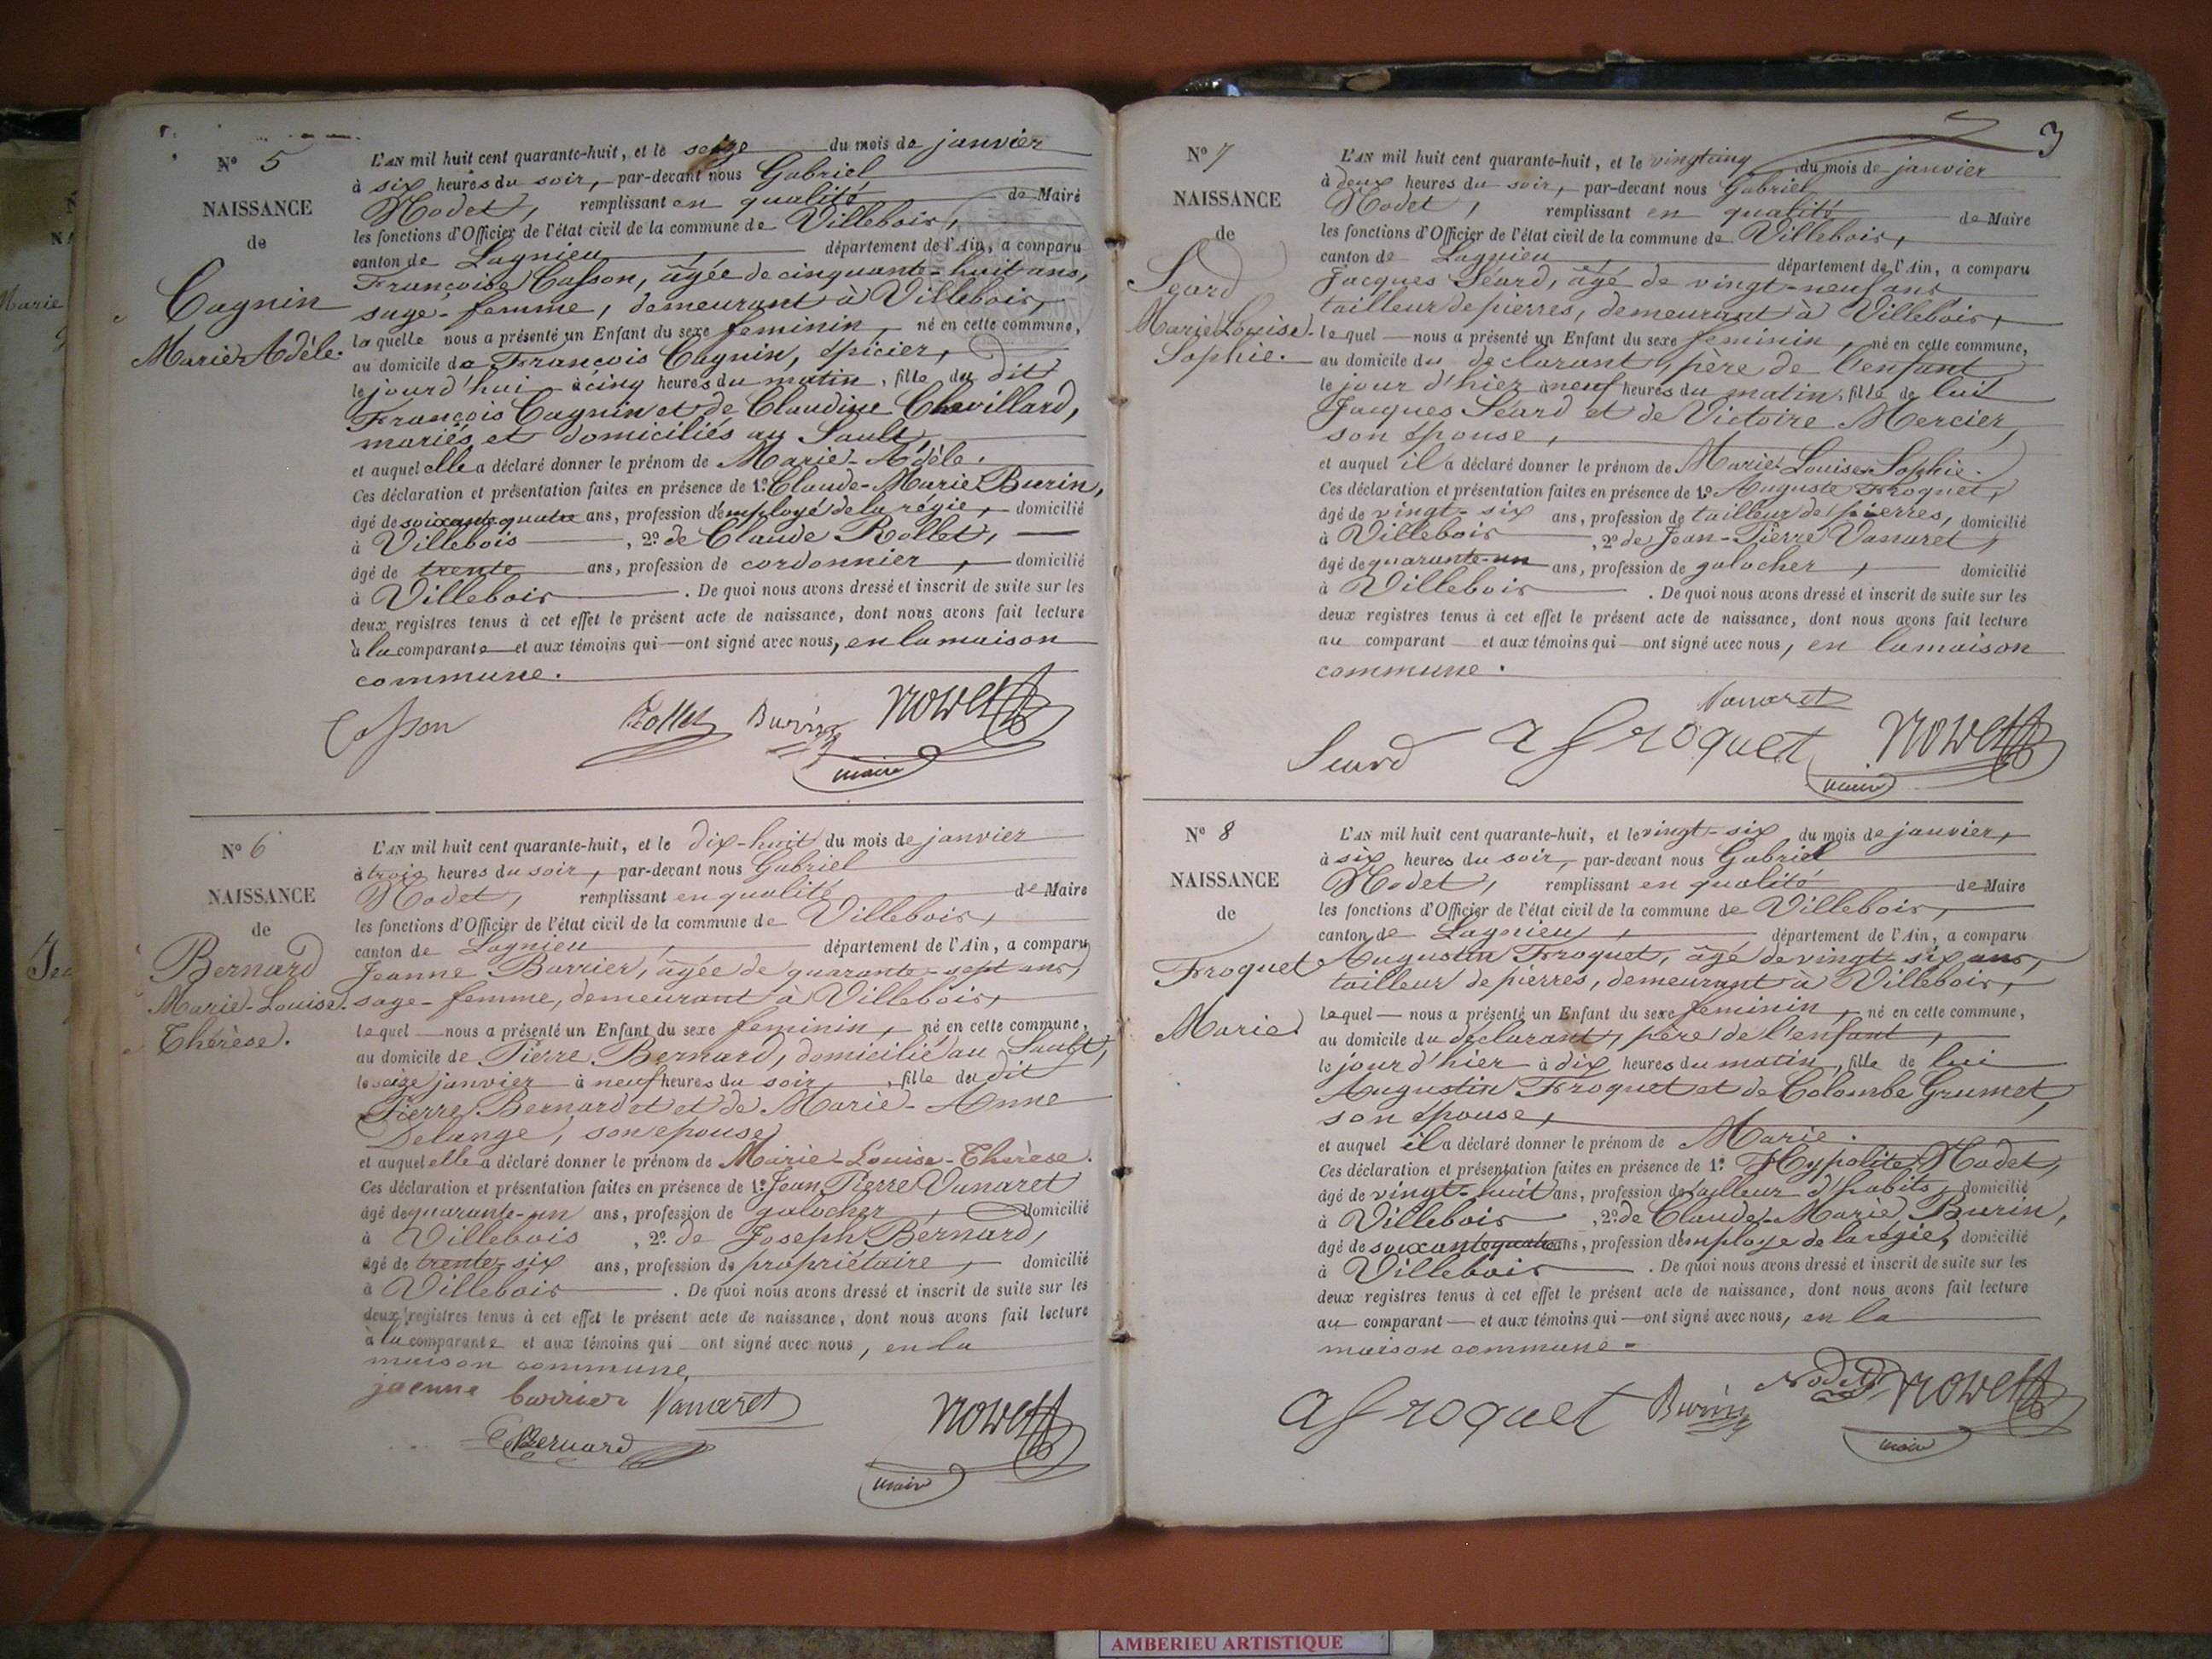 N° 5
NAISSANCE
de
Cagnin
Marie Adèle.
L'AN mil huit cent quarante-huit, et le seize du mois de janvier
à six heures du soir, par-devant nous Gabriel
Nodet, remplissant en qualité de Maire
les fonctions d'Officier de l'état civil de la commune de Villebois,
canton de Lagnieu, département de l'Ain, a comparu
Françoise Casson, âgée de cinquante-huit ans,
sage-femme, demeurant à Villebois,
laquelle nous a présenté un Enfant du sexe feminin, né en cette commune,
au domicile de François Cagnin, épicier,
le jourd'hui à cinq heures du matin, fille du dit
François Cagnin et de Claudine Chevillard,
mariés et domiciliés au Sault,
et auquel elle a déclaré donner le prénom de Marie-Adèle.
Ces déclaration et présentation faites en présence de 1° Claude-Marie Burin,
âgé de soixante quatre ans, profession d'employé de la régie, domicilié
à Villebois, 2° de Claude Rollet,
âgé de trente ans, profession de cordonnier, domicilié
à Villebois. De quoi nous avons dressé et inscrit de suite sur les
deux registres tenus à cet effet le présent acte de naissance, dont nous avons fait lecture
à la comparante et aux témoins qui ont signé avec nous, en la maison
commune.
Casson Rollet Burin Nodet
maire
N° 6
NAISSANCE
de
Bernard
Marie-Louise.
Thérèse.
L'AN mil huit cent quarante-huit, et le dix-huit du mois de janvier
à trois heures du soir, par-devant nous Gabriel
Nodet, remplissant en qualité de Maire
les fonctions d'Officier de l'état civil de la commune de Villebois,
canton de Lagnieu, département de l'Ain, a comparu
Jeanne Barrier, âgée de quarante-sept ans,
sage-femme, demeurant à Villebois,
lequel nous a présenté un Enfant du sexe feminin, né en cette commune,
au domicile de Pierre Bernard, domicilié au Sault,
le seize janvier à neuf heures du soir, fille du dit
Pierre Bernard et et de Marie-Anne
Delange, son epouse,
et auquel elle a déclaré donner le prénom de Marie-Louise-Thérèse.
Ces déclaration et présentation faites en présence de 1° Jean Pierre Vanaret
âgé de quarante-un ans, profession de galocher, domicilié
à Villebois, 2° de Joseph Bernard,
âgé de trente-six ans, profession de propriétaire, domicilié
à Villebois. De quoi nous avons dressé et inscrit de suite sur les
deux registres tenus à cet effet le présent acte de naissance, dont nous avons fait lecture
à la comparante et aux témoins qui ont signé avec nous, en la
maison commune
jaenne barrier Vanaret Nodet
Bernard
maire
3
N° 7
NAISSANCE
de
Séard
Marie Louise.
Sophie.
L'AN mil huit cent quarante-huit, et le vingt cinq du mois de janvier
à deux heures du soir, par-devant nous Gabriel
Nodet, remplissant en qualité de Maire
les fonctions d'Officier de l'état civil de la commune de Villebois,
canton de Lagnieu, département de l'Ain, a comparu
Jacques Séard, âgé de vingt-neuf ans
tailleur de pierres, demeurant à Villebois,
lequel nous a présenté un Enfant du sexe feminin, né en cette commune,
au domicile du declarant, père de l'enfant
le jour d'hier à neuf heures du matin, fille de lui
Jacques Séard et de Victoire Mercier,
son épouse,
et auquel il a déclaré donner le prénom de Marie Louise Sophie.
Ces déclaration et présentation faites en présence de 1° Auguste Froquet,
âgé de vingt-six ans, profession de tailleur de pierres, domicilié
à Villebois, 2° de Jean-Pierre Vanaret,
âgé de quarante-un ans, profession de galocher, domicilié
à Villebois. De quoi nous avons dressé et inscrit de suite sur les
deux registres tenus à cet effet le présent acte de naissance, dont nous avons fait lecture
au comparant et aux témoins qui ont signé avec nous, en la maison
commune.
Vanaret
Seard a froquet Nodet
maire
N° 8
NAISSANCE
de
Froquet
Marie
L'AN mil huit cent quarante-huit, et le vingt-six du mois de janvier,
à six heures du soir, par-devant nous Gabriel
Nodet, remplissant en qualité de Maire
les fonctions d'Officier de l'état civil de la commune de Villebois,
canton de Lagnieu, département de l'Ain, a comparu
Augustin Froquet, âgé de vingt-six ans,
tailleur de pierres, demeurant à Villebois,
lequel nous a présenté un Enfant du sexe feminin, né en cette commune,
au domicile du déclarant, père de l'enfant,
le jour d'hier à dix heures du matin, fille de lui
Augustin Froquet et de Colombe Grumet,
son épouse,
et auquel il a déclaré donner le prénom de Marie.
Ces déclaration et présentation faites en présence de 1° Hypolite Nodet,
âgé de vingt-huit ans, profession de tailleur d'habits, domicilié
à Villebois, 2° de Claude-Marie Burin,
âgé de soixante quatre ans, profession d'employe de la régie, domicilié
à Villebois. De quoi nous avons dressé et inscrit de suite sur les
deux registres tenus à cet effet le présent acte de naissance, dont nous avons fait lecture
au comparant et aux témoins qui ont signé avec nous, en la
maison commune.
a froquet Burin Nodet Nodet
maire
AMBERIEU ARTISTIQUE